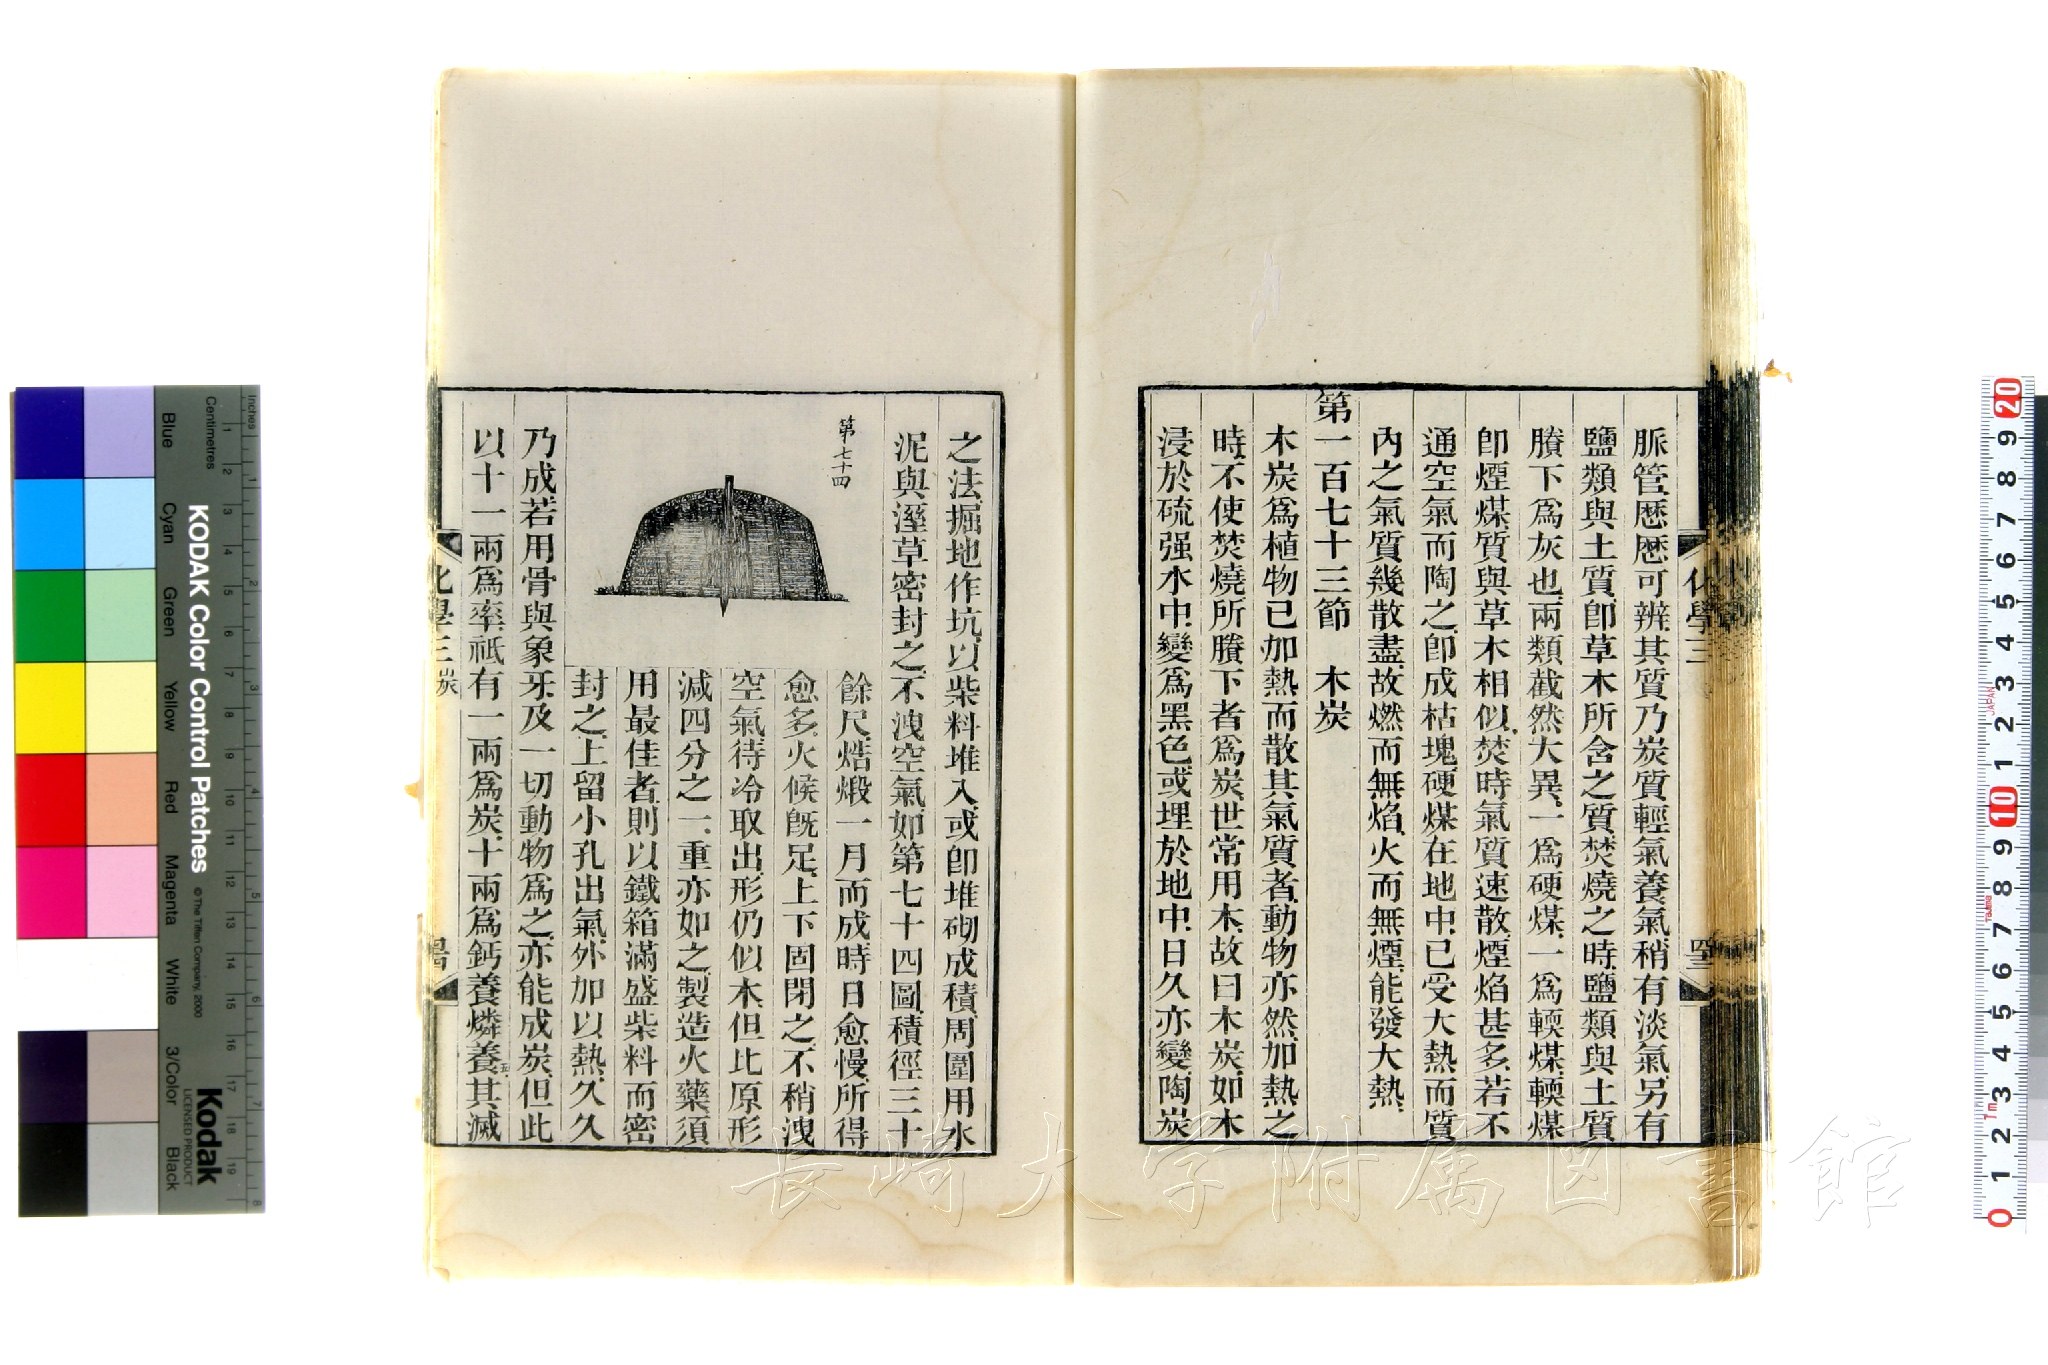 脈管歷歷可辨其質乃炭質輕氣養氣稍有淡氣另有
鹽類與土質卽草木所含之質焚燒之時鹽類與土質
賸下爲灰也兩類截然大異一爲硬煤一爲輭煤輭煤
卽煙煤質與草木相似焚時氣質速散煙焰甚多若不
通空氣而陶之卽成枯塊硬煤在地中已受大熱而質
內之氣質幾散盡故燃而無焰火而無煙能發大熱
第一百七十三節 木炭
木炭爲植物已加熱而散其氣質者動物亦然加熱之
時不使焚燒所賸下者爲炭世常用木故曰木炭如木
浸於硫强水中變爲黑色或埋於地中日久亦變陶炭
化學三
之法掘地作坑以柴料堆入或卽堆砌成積周圍用水
泥與溼草密封之不洩空氣如第七十四圖積徑三十
第七十四
餘尺焅煅一月而成時日愈慢所得
愈多火候旣足上下固閉之不稍洩
空氣待冷取出形仍似木但比原形
減四分之一重亦如之製造火藥須
用最佳者則以鐵箱滿盛柴料而密
封之上留小孔出氣外加以熱久久
乃成若用骨與象牙及一切動物爲之亦能成炭但此
以十一兩爲率祇有一兩爲炭十兩爲鈣養燐養五其滅
化學三 炭
KODAK Color Control Patches
© The Tiffen Company, 2000
Kodak
LICENSED PRODUCT
Inches
Centimetres
Blue
Cyan
Green
Yellow
Red
Magenta
White
3/Color
Black
長崎大学附属図書館
JAPAN